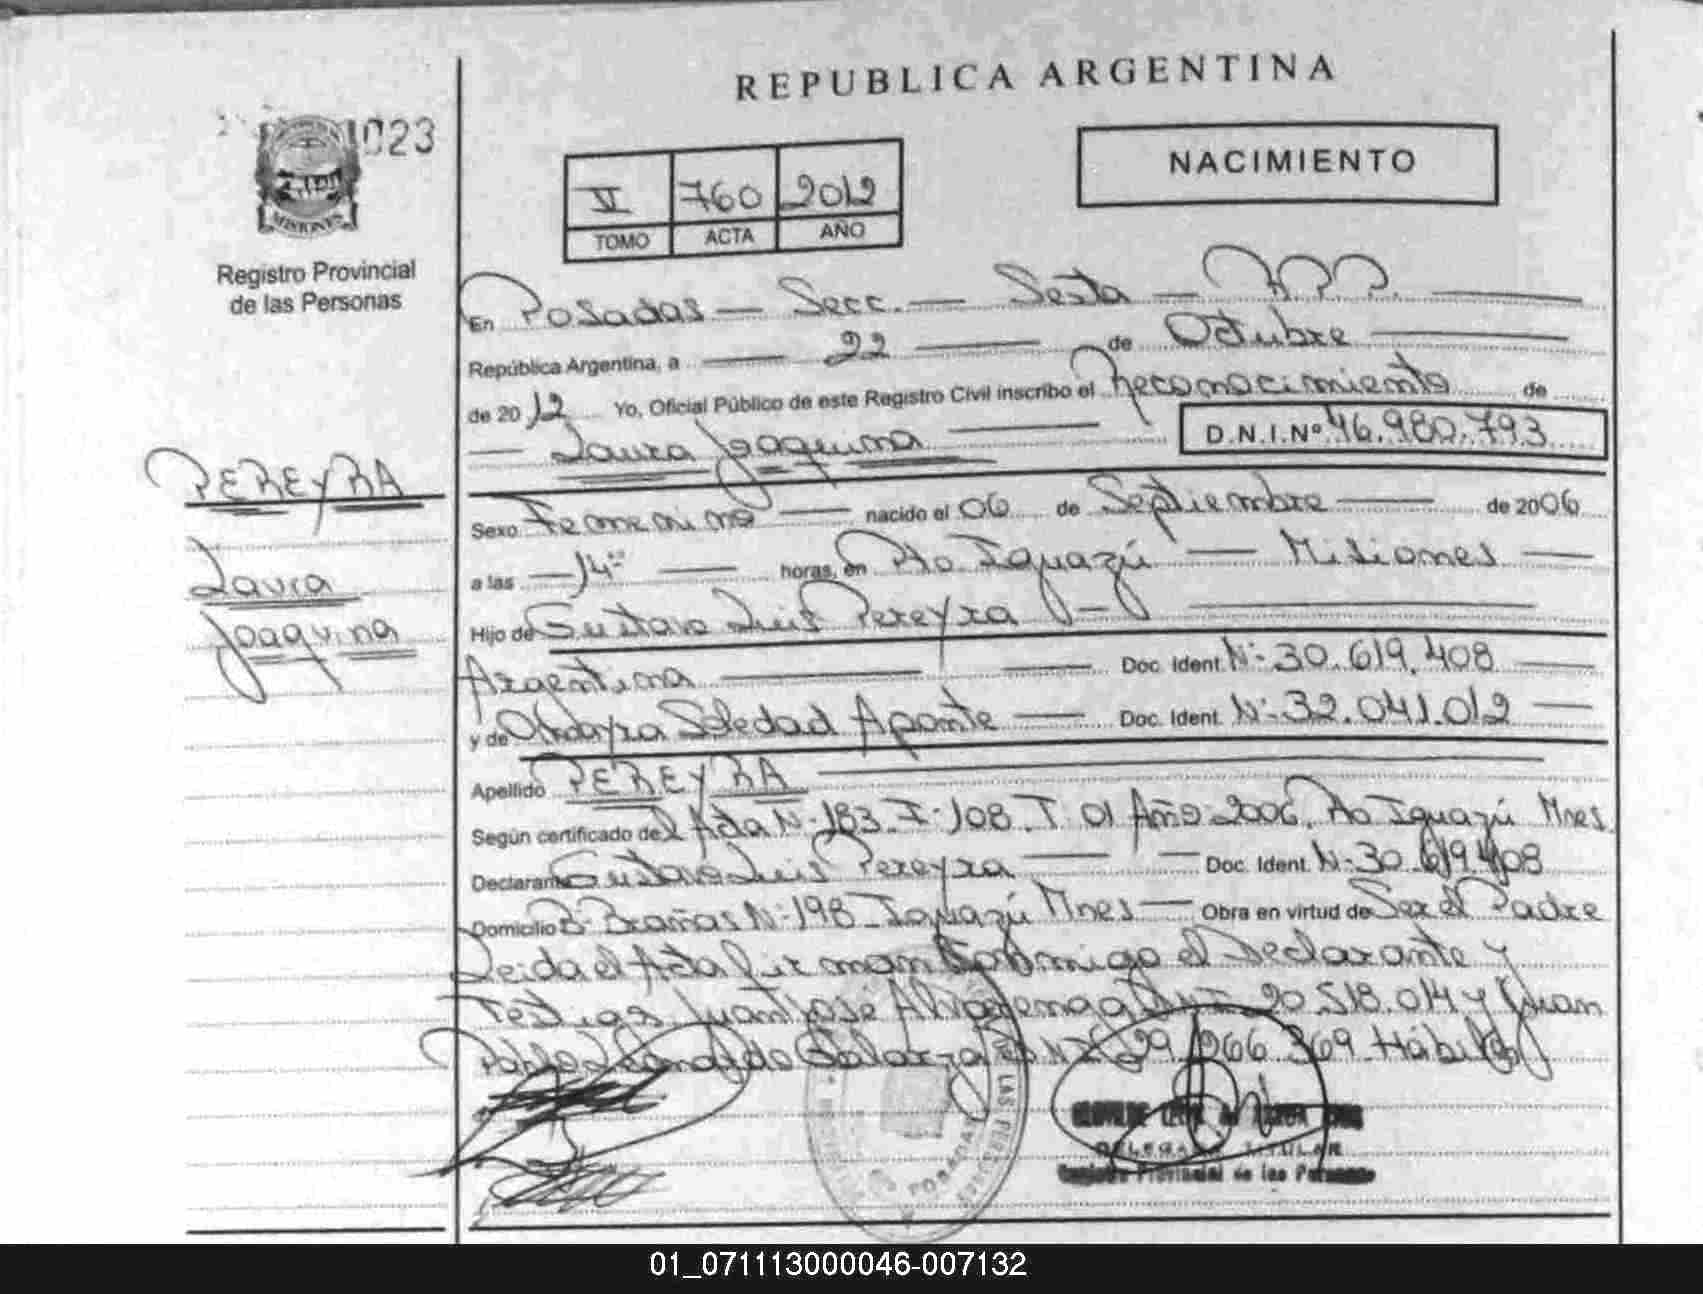 REPUBLICA ARGENTINA
1023
MISIONES
Registro Provincial
de las Personas
VI 760 2012
TOMO ACTA AÑO
NACIMIENTO
En Posadas — Secc. — Sexta —
República Argentina, a — 22 — de Octubre —
de 2012 Yo, Oficial Público de este Registro Civil inscribo el Reconocimiento de
— Laura Joaquina — D.N.I.Nº 46.980.793
PEREYRA
Laura
Joaquina
Sexo Femenino — nacido el 06 de Septiembre — de 2006
a las — 14 — horas, en Pto Iguazú — Misiones —
Hijo de Gustavo Luis Pereyra —
Argentina — Doc. Ident. Nº 30.619.408 —
y de Soledad Aponte — Doc. Ident. Nº 32.041.012 —
Apellido PEREYRA —
Según certificado del Acta Nº 183. F: 108. T. 01 Año 2006. Pto Iguazú Mnes
Declarante Gustavo Luis Pereyra — Doc. Ident. Nº 30.619.408
Domicilio Bº Brañas Nº 198 Iguazú Mnes — Obra en virtud de Ser el Padre
Leida el Acta firman conmigo el Declarante y
Testigos Juan José 20.518.014 y Juan
Pablo Leonardo Galarza 29.966.369 Hábiles
LAS PERSONAS
POSADAS
DELEGADA TITULAR
Registro Provincial de las Personas
01_071113000046-007132